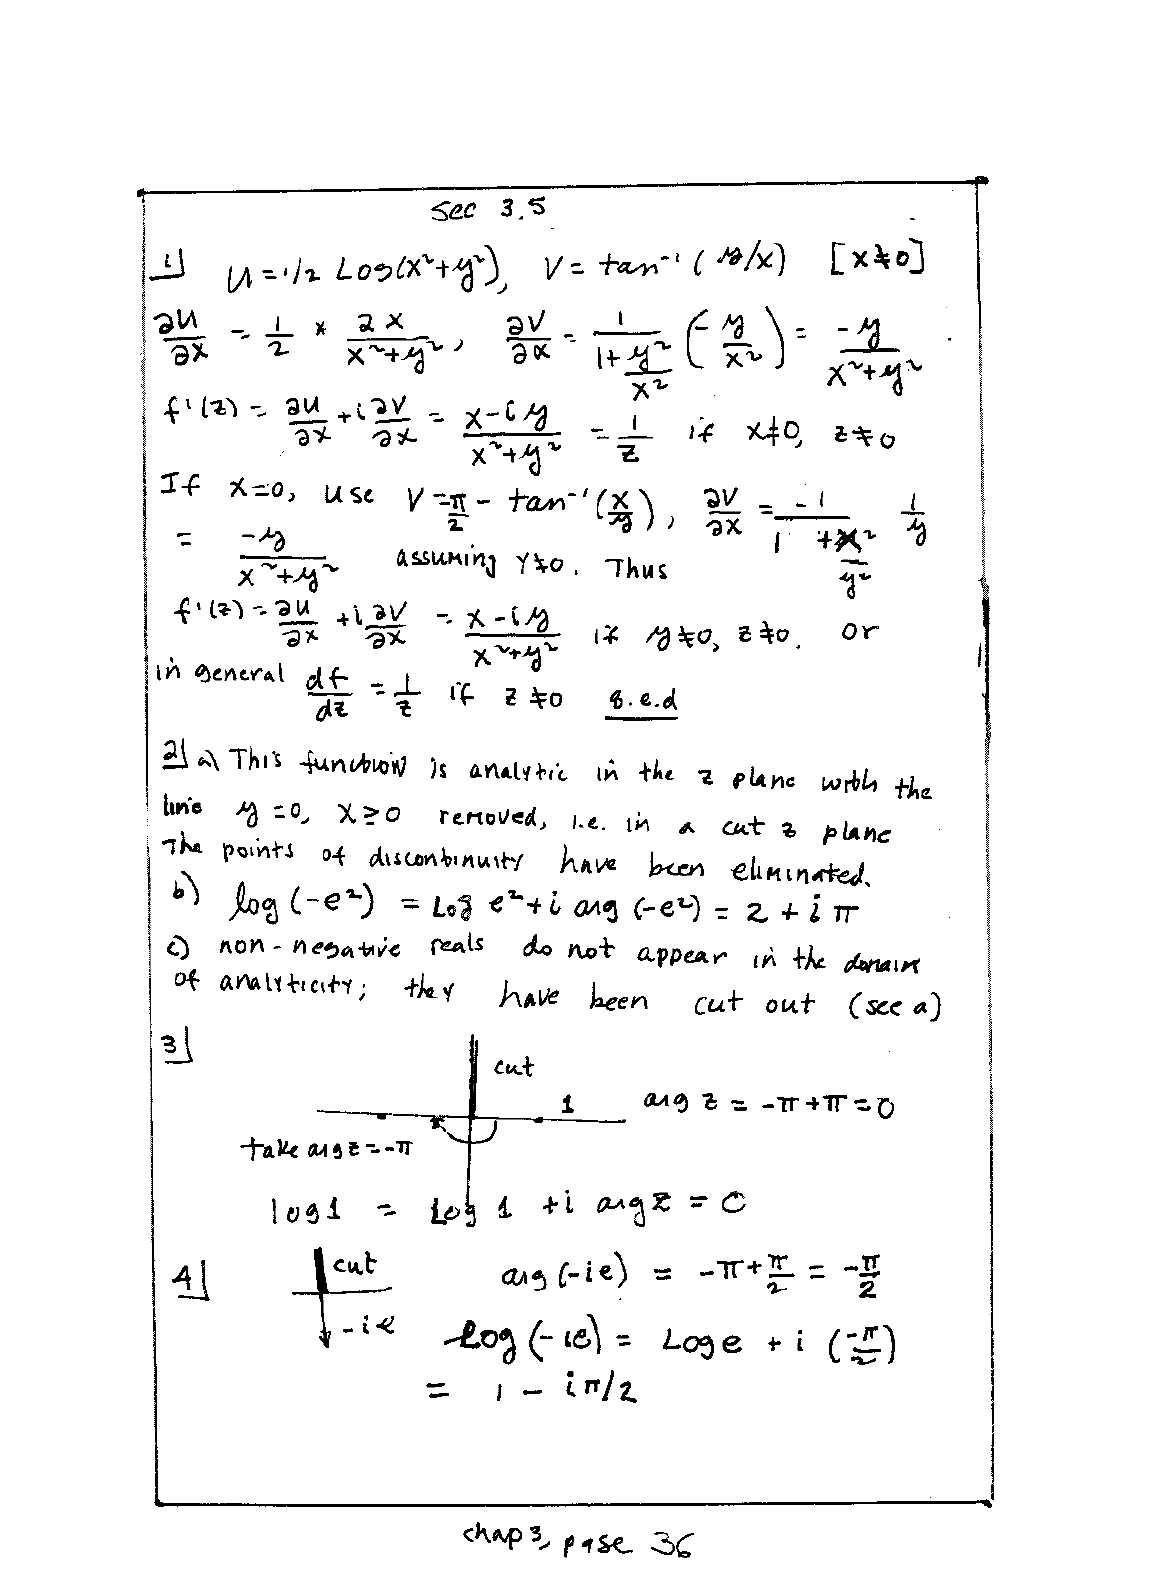 Sec 3.5
1] U = 1/2 Log(x²+y²), V = tan⁻¹(y/x) [x≠0]
∂U/∂x = 1/2 * 2x/(x²+y²), ∂V/∂x = 1/(1+y²/x²) (-y/x²) = -y/(x²+y²)
f'(z) = ∂U/∂x + i ∂V/∂x = (x-iy)/(x²+y²) = 1/z if x≠0, z≠0
If x=0, use V = π/2 - tan⁻¹(x/y), ∂V/∂x = -1/(1+x²/y²) 1/y
= -y/(x²+y²) assuming Y≠0. Thus
f'(z) = ∂U/∂x + i ∂V/∂x = (x-iy)/(x²+y²) if y≠0, z≠0. or
in general df/dz = 1/z if z≠0 q.e.d
2] a) This function is analytic in the z plane with the
line y=0, x≥0 removed, i.e. in a cut z plane
The points of discontinuity have been eliminated.
b) log(-e²) = Log e² + i arg(-e²) = 2 + iπ
c) non-negative reals do not appear in the domain
of analyticity; they have been cut out (see a)
3]
cut
1 arg z = -π+π=0
take arg z = -π
log 1 = Log 1 + i arg z = 0
4] cut arg(-ie) = -π + π/2 = -π/2
-ie log(-ie) = Log e + i (-π/2)
= 1 - iπ/2
chap 3, page 36